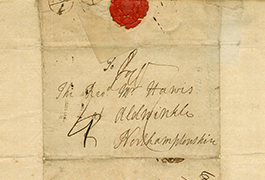 To
The Rev. Mr Hawis
at Aldwinkle
Northamptonshire